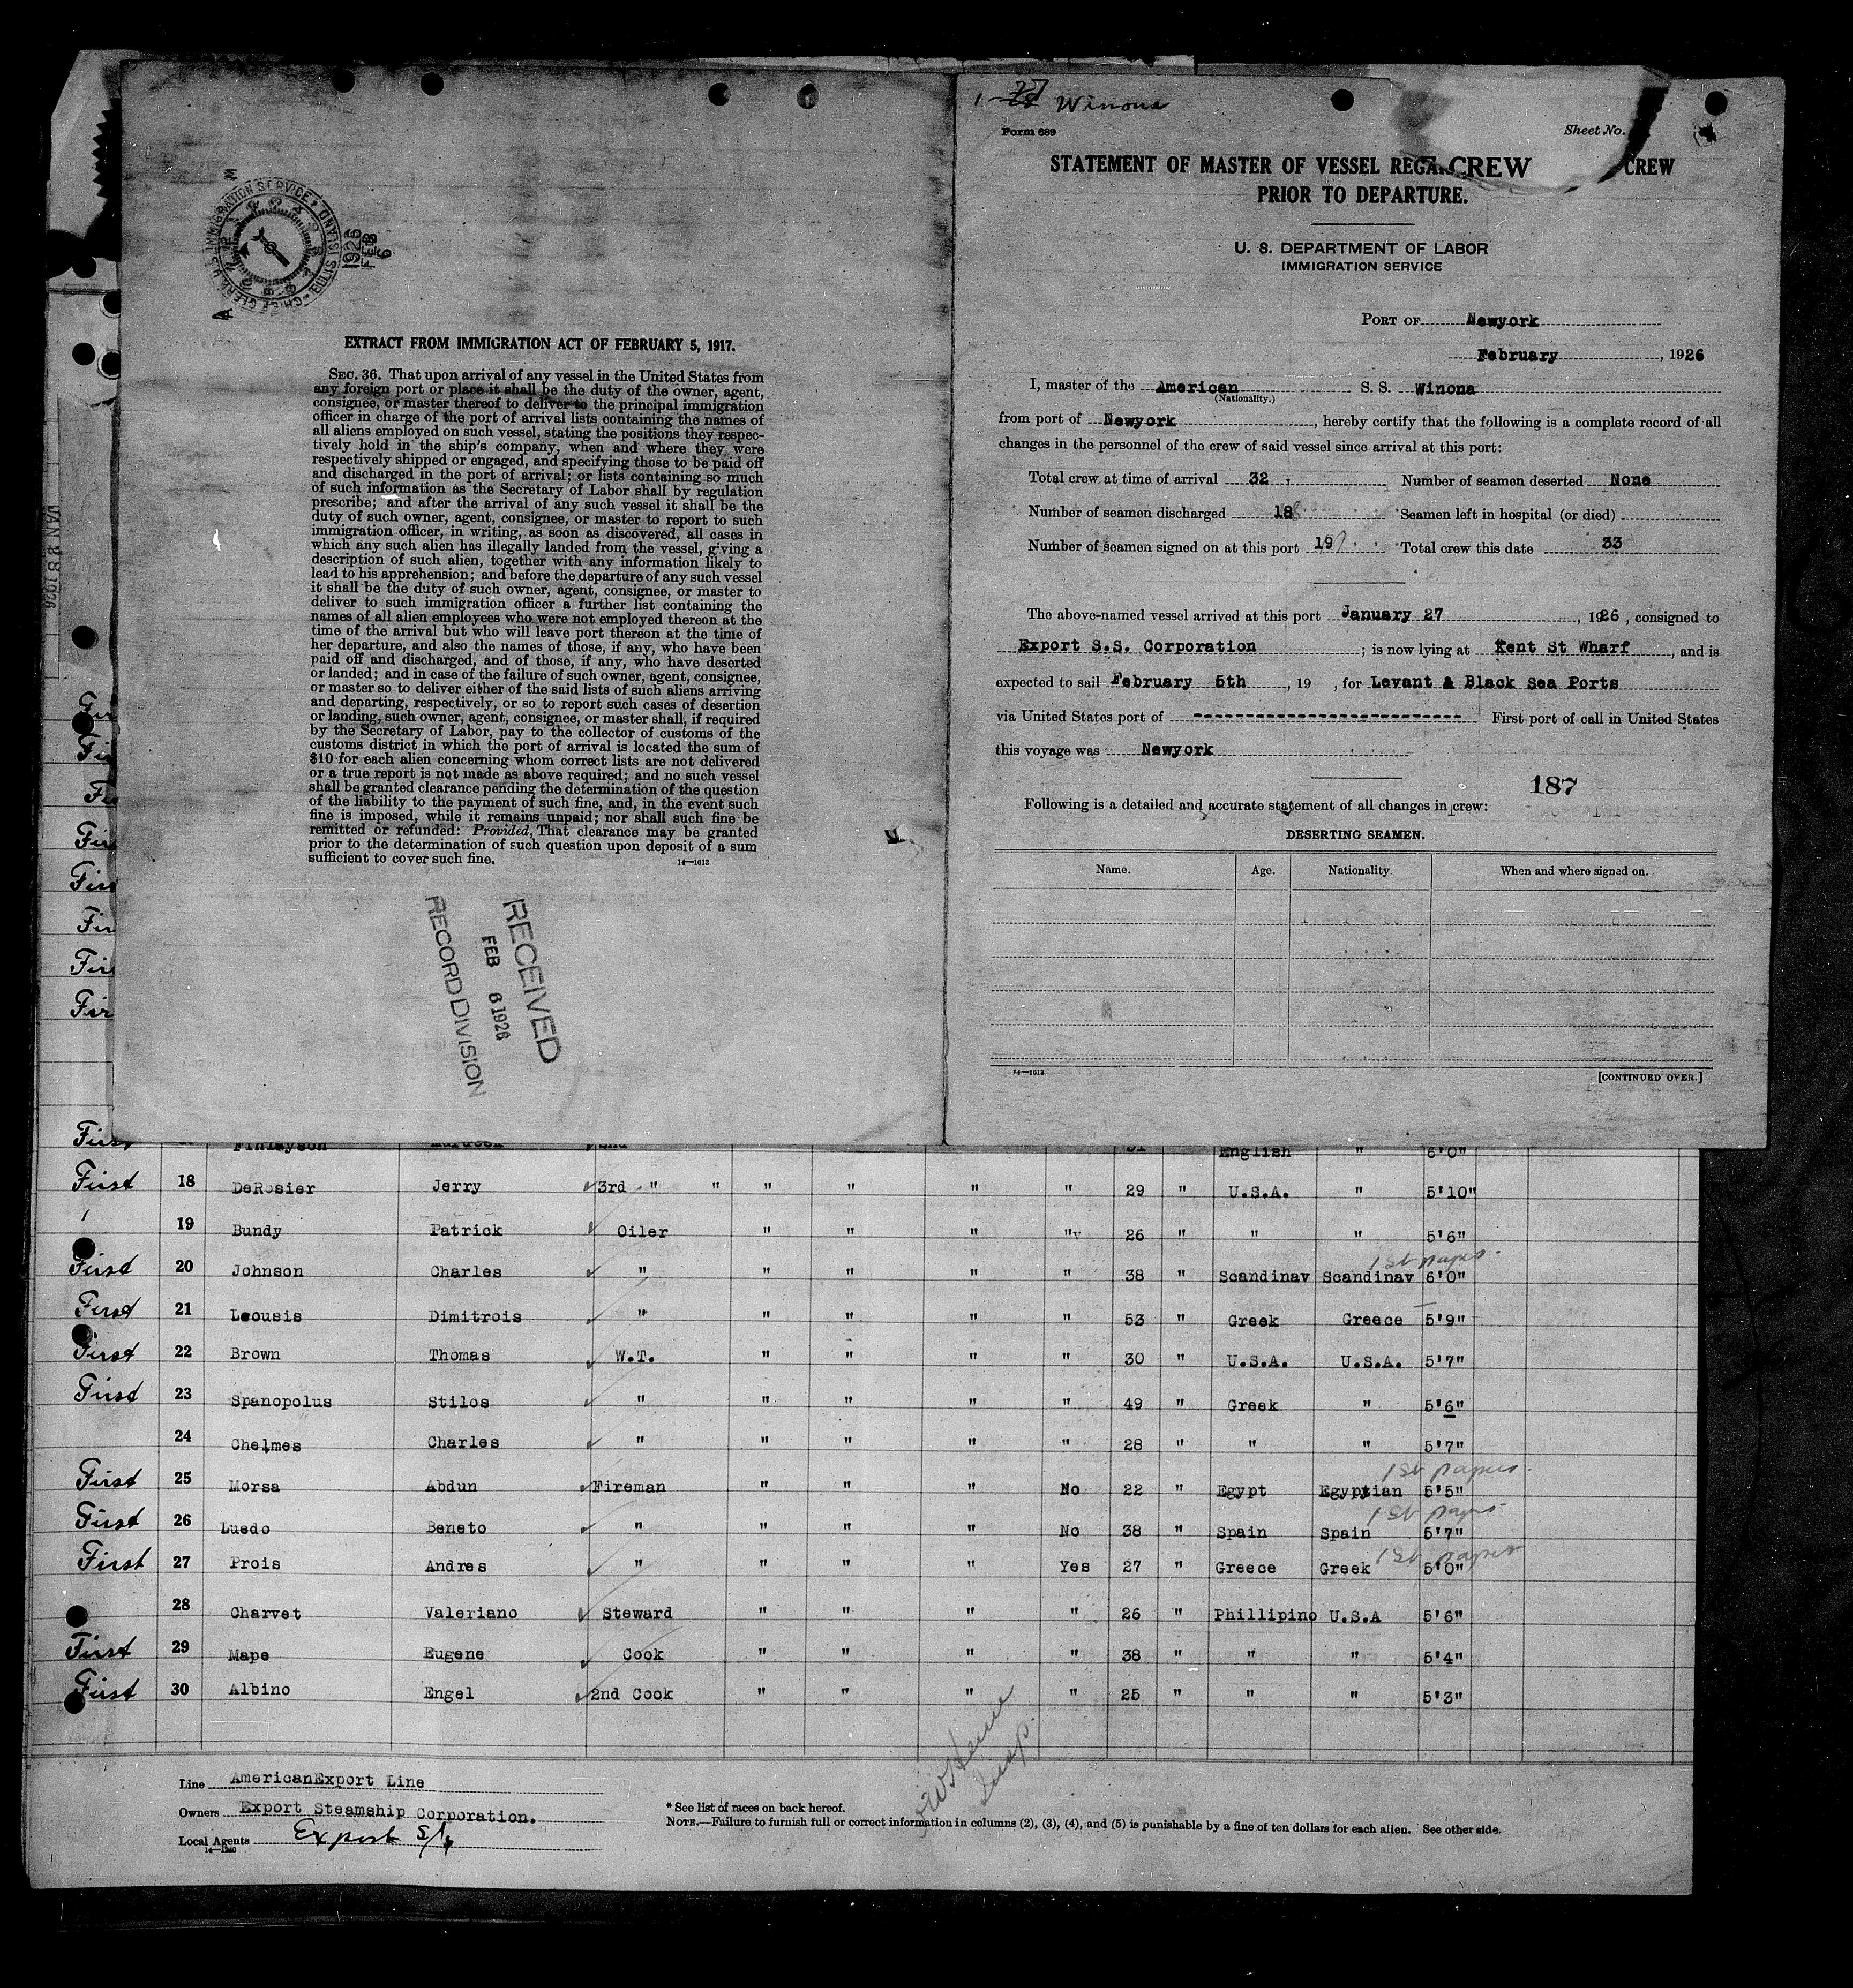 U.S. IMMIGRATION SERVICE
ELLIS ISLAND
CHIEF CLERK
1926
FEB
6
EXTRACT FROM IMMIGRATION ACT OF FEBRUARY 5, 1917.
SEC. 36. That upon arrival of any vessel in the United States from
any foreign port or place it shall be the duty of the owner, agent,
consignee, or master thereof to deliver to the principal immigration
officer in charge of the port of arrival lists containing the names of
all aliens employed on such vessel, stating the positions they respec-
tively hold in the ship's company, when and where they were
respectively shipped or engaged, and specifying those to be paid off
and discharged in the port of arrival; or lists containing so much
of such information as the Secretary of Labor shall by regulation
prescribe; and after the arrival of any such vessel it shall be the
duty of such owner, agent, consignee, or master to report to such
immigration officer, in writing, as soon as discovered, all cases in
which any such alien has illegally landed from the vessel, giving a
description of such alien, together with any information likely to
lead to his apprehension; and before the departure of any such vessel
it shall be the duty of such owner, agent, consignee, or master to
deliver to such immigration officer a further list containing the
names of all alien employees who were not employed thereon at the
time of the arrival but who will leave port thereon at the time of
her departure, and also the names of those, if any, who have been
paid off and discharged, and of those, if any, who have deserted
or landed; and in case of the failure of such owner, agent, consignee,
or master so to deliver either of the said lists of such aliens arriving
and departing, respectively, or so to report such cases of desertion
or landing, such owner, agent, consignee, or master shall, if required
by the Secretary of Labor, pay to the collector of customs of the
customs district in which the port of arrival is located the sum of
$10 for each alien concerning whom correct lists are not delivered
or a true report is not made as above required; and no such vessel
shall be granted clearance pending the determination of the question
of the liability to the payment of such fine, and, in the event such
fine is imposed, while it remains unpaid; nor shall such fine be
remitted or refunded: Provided, That clearance may be granted
prior to the determination of such question upon deposit of a sum
sufficient to cover such fine. 14—1613
RECEIVED
FEB 6 1926
RECORD DIVISION
JAN 28 1926
Winona
Form 689 Sheet No.
STATEMENT OF MASTER OF VESSEL REGAR CREW CREW
PRIOR TO DEPARTURE.
U. S. DEPARTMENT OF LABOR
IMMIGRATION SERVICE
PORT OF Newyork
February, 1926
I, master of the American S. S. Winona
(Nationality.)
from port of Newyork, hereby certify that the following is a complete record of all
changes in the personnel of the crew of said vessel since arrival at this port:
Total crew at time of arrival 32 Number of seamen deserted None
Number of seamen discharged 18 Seamen left in hospital (or died)
Number of seamen signed on at this port 19 Total crew this date 33
The above-named vessel arrived at this port January 27, 1926, consigned to
Export S.S. Corporation; is now lying at Kent St Wharf, and is
expected to sail February 5th, 19 , for Levant & Black Sea Ports
via United States port of ------------------------- First port of call in United States
this voyage was Newyork
187
Following is a detailed and accurate statement of all changes in crew:
DESERTING SEAMEN.
Name. Age. Nationality When and where signed on.
14—1613 [CONTINUED OVER.]
First Finlayson Murdoch 2nd 31 English " 6'0"
First 18 DeRosier Jerry 3rd " " " " " " 29 " U.S.A. " 5'10"
19 Bundy Patrick Oiler " " " " 26 " " " 5'6"
1st papers
First 20 Johnson Charles " " " " " 38 " Scandinav Scandinav 6'0"
First 21 Leousis Dimitrois " " " " " 53 " Greek Greece 5'9"
First 22 Brown Thomas W.T. " " " " 30 " U.S.A. U.S.A. 5'7"
First 23 Spanopolus Stilos " " " " " 49 " Greek " 5'6"
24 Chelmes Charles " " " " " 28 " " " 5'7"
1st papers
First 25 Morsa Abdun Fireman " " " No 22 " Egypt Egyptian 5'5"
1st papers
First 26 Luedo Beneto " " " " No 38 " Spain Spain 5'7"
1st papers
First 27 Prois Andres " " " " Yes 27 " Greece Greek 5'0"
28 Charvet Valeriano Steward " " " " 26 " Phillipino U.S.A 5'6"
First 29 Mape Eugene Cook " " " " 38 " " " 5'4"
First 30 Albino Engel 2nd Cook " " " " 25 " " " 5'3"
Line AmericanExport Line
Owners Export Steamship Corporation.
Local Agents Export S/S
14—1240
Insp.
* See list of races on back hereof.
NOTE.—Failure to furnish full or correct information in columns (2), (3), (4), and (5) is punishable by a fine of ten dollars for each alien. See other side.